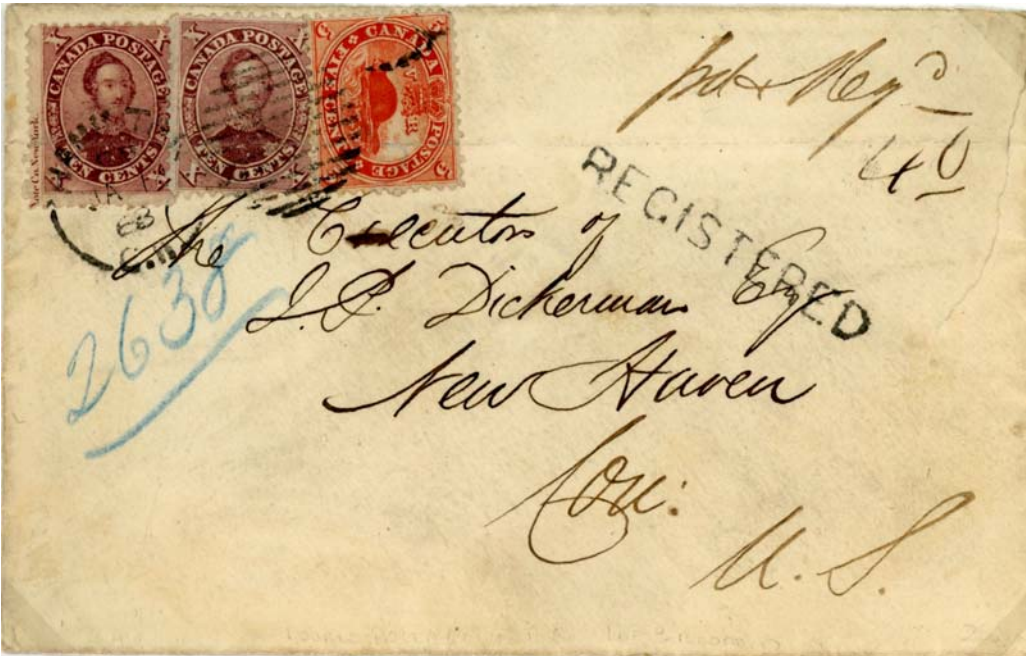 X CANADA POSTAGE X
TEN CENTS
X CANADA POSTAGE X
TEN CENTS
5 CANADA POSTAGE 5
FIVE CENTS
V R
Note Co. New York.
JA
68
C.W.
pd & Regd
40
REGISTERED
2638
The Executors of
J. P. Dickerman Esq
New Haven
Con:
U. S.